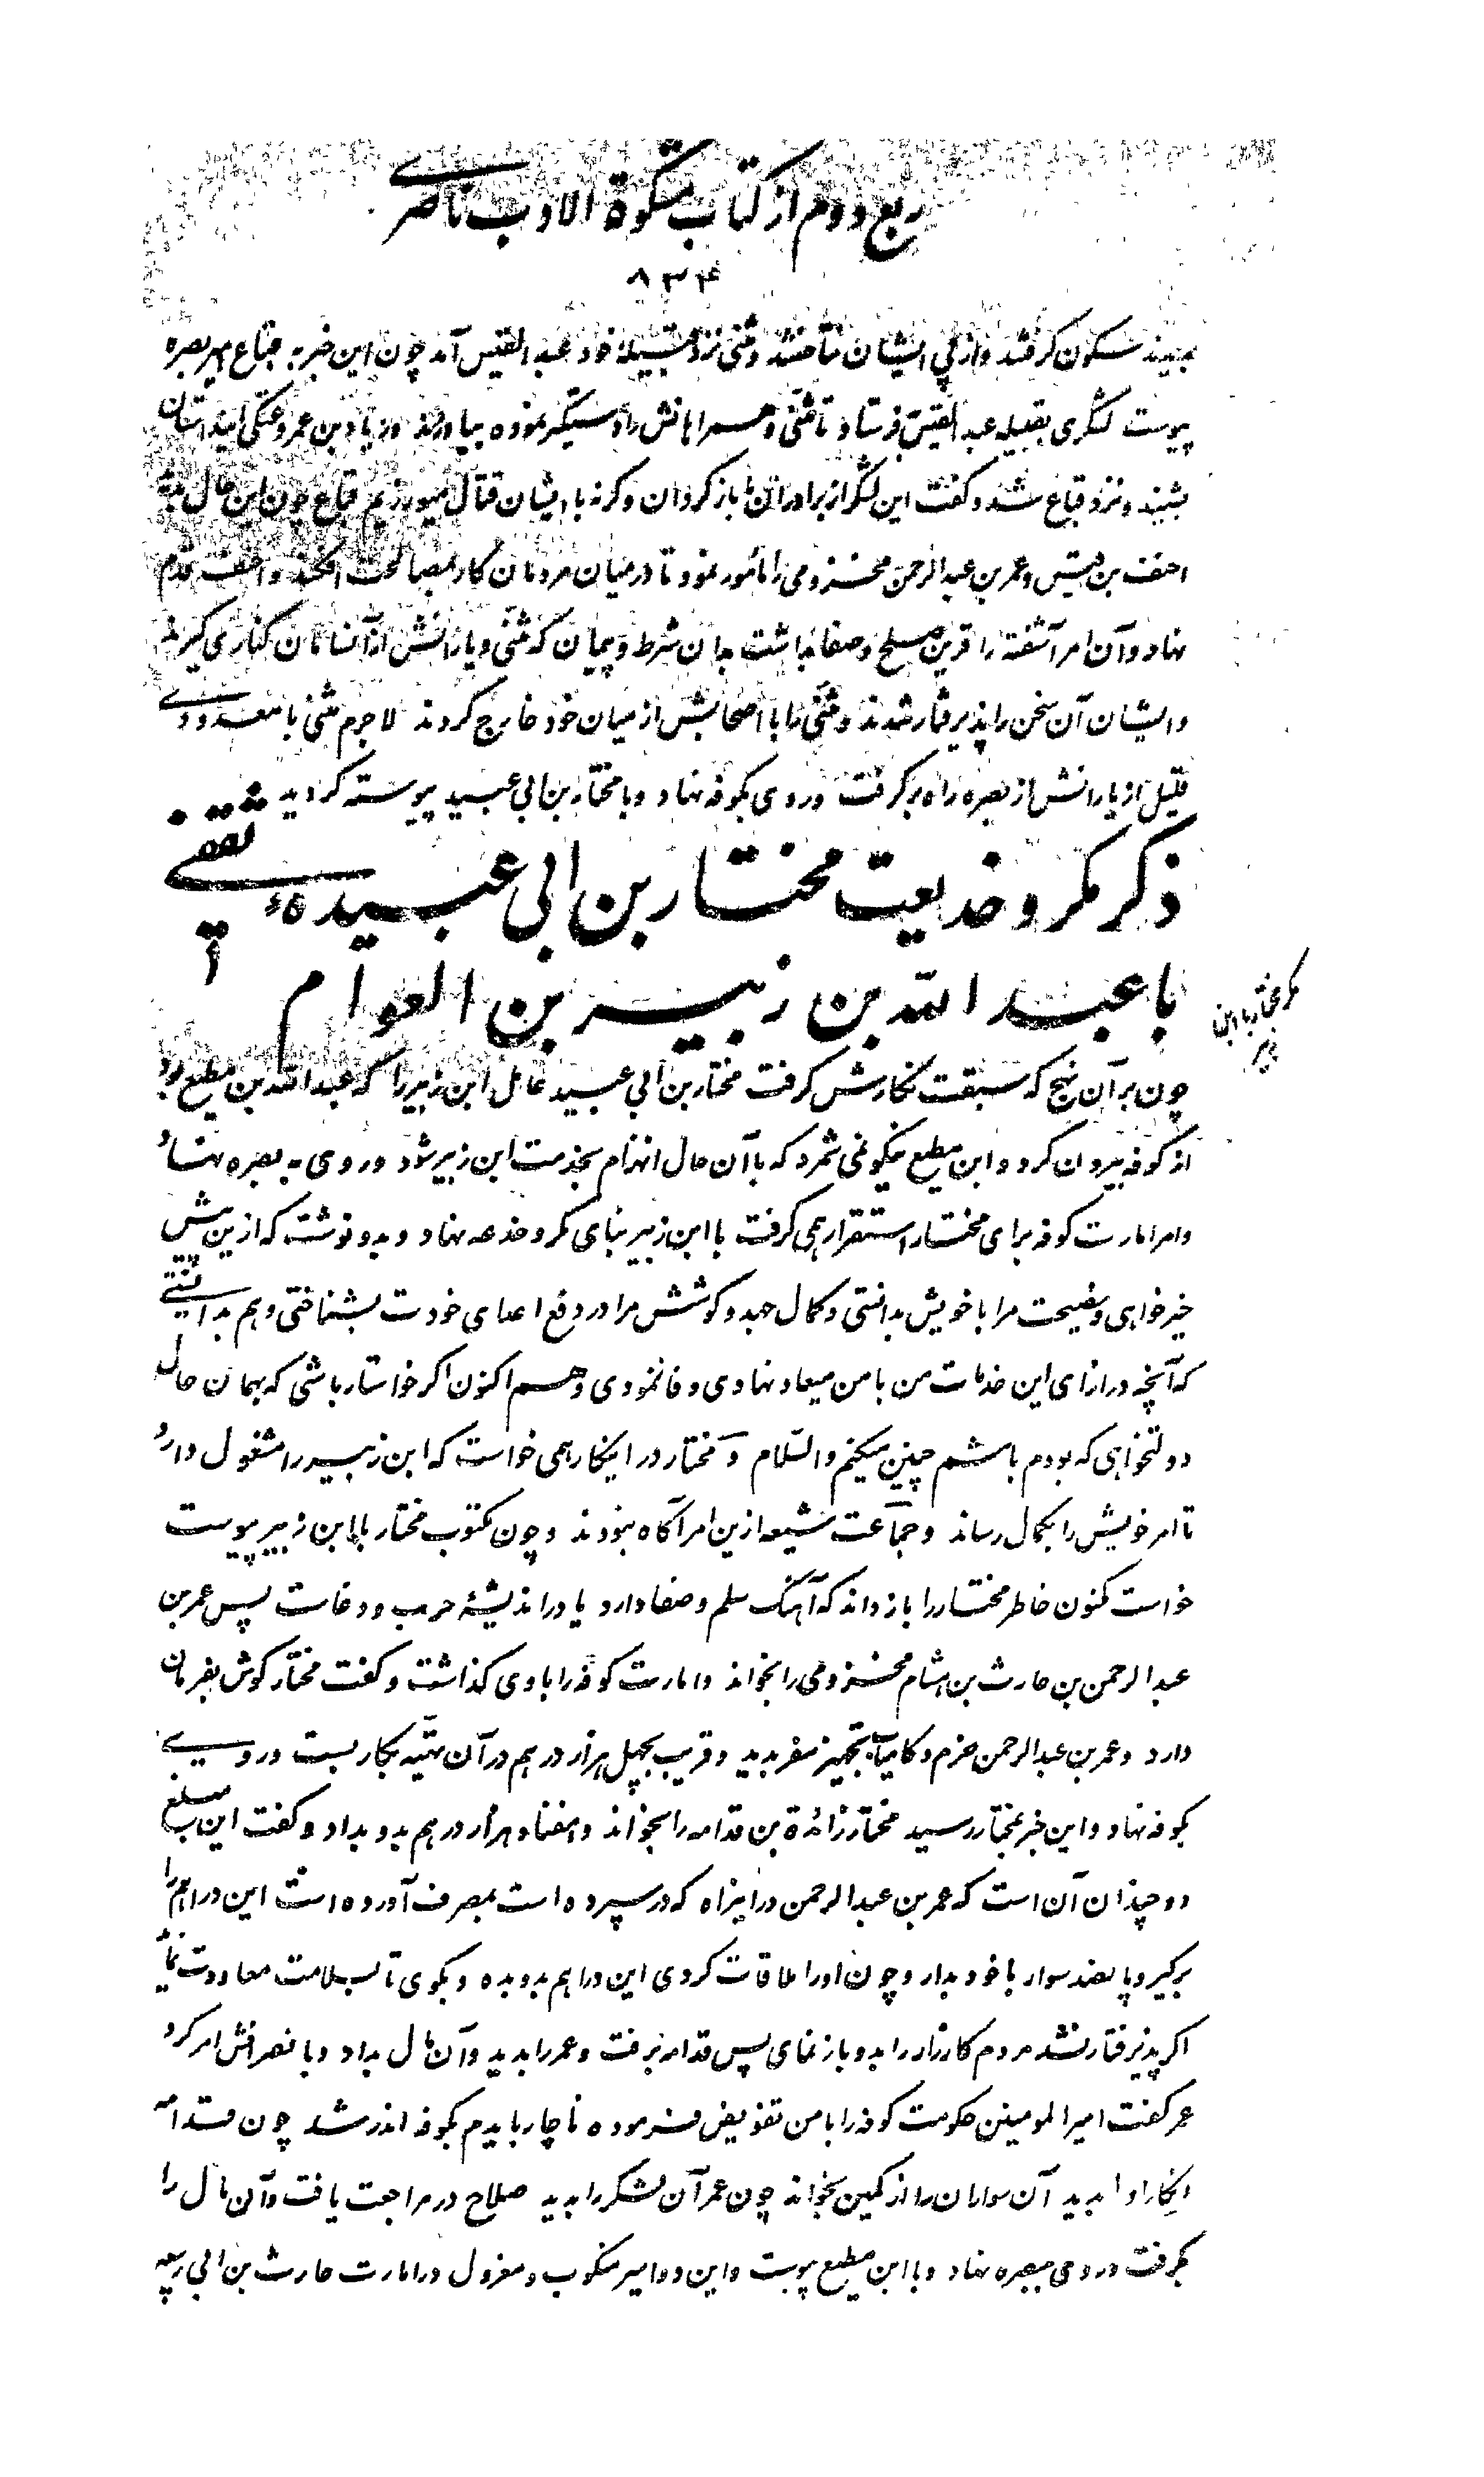 ربع دوم از کتاب مشکوة الادب ناصری
۸۳۴
بدیدند سکون گرفتند و از پی ایشان نتاختند و مثنی نزد قبیله خود عبد القیس آمد چون این خبر به قباع امیر بصره
پیوست لشگری بقبیله عبد القیس فرستاد تا مثنی و همراهانش را دستگیر نموده بیاورند و زیاد بن عمرو عتکی این داستان
بشنید و نزد قباع شد و گفت این لشگر از برادران ما باز گردان و گرنه با ایشان قتال میورزیم قباع چون این حال بدید
احنف بن قیس و عمر بن عبد الرحمن مخزومی را مامور نمود تا در میان مردمان کار بمصالحت افکند و احنف قدم
نهاد و آن امر آشفته را قرین صلح و صفا بداشت بدان شرط و پیمان که مثنی و یارانش از آنسامان کناری گیرند
و ایشان آن سخن را پذیرفتار شدند و مثنی را با اصحابش از میان خود خارج کردند لاجرم مثنی با معدودی
قلیل از یارانش از بصره راه برگرفت و روی بکوفه نهاد و با مختار بن ابی عبید پیوسته گردید
ذکر مکر و خدیعت مختار بن ابی عبیدهٔ ثقفی
با عبد الله بن زبیر بن العوام
مکر مختار با ابن زبیر
چون بر آن نهج که سبقت نگارش گرفت مختار بن ابی عبید عامل ابن زبیر را که عبد الله بن مطیع بود
از کوفه بیرون کرد و ابن مطیع نیکو نمی شمرد که با آن حال انهزام بخدمت ابن زبیر شود و روی به بصره نهاد
و امر امارت کوفه برای مختار استقرار همی گرفت با ابن زبیر بنای مکر و خدعه نهاد و بدو نوشت که ازین پیش
خیرخواهی و نصیحت مرا با خویش بدانستی و کمال جهد و کوشش مرا در دفع اعدای خودت بشناختی و هم بدانستی
که آنچه در ازای این خدمات من با من میعاد نهادی وفا ننمودی و هم اکنون اگر خواستار باشی که بهمان حال
دولتخواهی که بودم باشم چنین میکنم والسّلام و مختار در اینکار همی خواست که ابن زبیر را مشغول دارد
تا امر خویش را بکمال رساند و جماعت شیعه ازین امر آگاه نبودند و چون مکتوب مختار با ابن زبیر پیوست
خواست کنون خاطر مختار را باز داند که آهنگ سلم و صفا دارد یا در اندیشهٔ حرب و دغاست پس عمر بن
عبد الرحمن بن حارث بن هشام مخزومی را بخواند و امارت کوفه را با وی گذاشت و گفت مختار گوش بفرمان
دارد و عمر بن عبد الرحمن خرم و کامیاب تجهیز سفر بدید و قریب بچهل هزار درهم در آن تهیّه بکار بست و روی
بکوفه نهاد و این خبر بمختار رسید مختار زائدة بن قدامه را بخواند و هفتاد هزار درهم بدو بداد و گفت این مبلغ
دو چندان آن است که عمر بن عبد الرحمن در این راه که در سپرده است بمصرف آورده است این دراهم را
برگیر و پانصد سوار با خود بدار و چون او را ملاقات کردی این دراهم بدو بده و بگوی تا بسلامت معاودت نماید
اگر پذیرفتار نشد مردم کارزار را بدو باز نمای پس قدامه برفت و عمر را بدید و آن مال بداد و بانصرافش امر کرد
عمر گفت امیر المومنین حکومت کوفه را با من تفویض فرموده ناچار بایدم بکوفه اندر شد چون قدامه
انکار او بدید آن سواران را از کمین بخواند چون عمر آن لشکر را بدید صلاح در مراجعت یافت و آن مال را
بگرفت و روی ببصره نهاد و با ابن مطیع پیوست و این دو امیر منکوب و معزول در امارت حارث بن ابی ربیعه